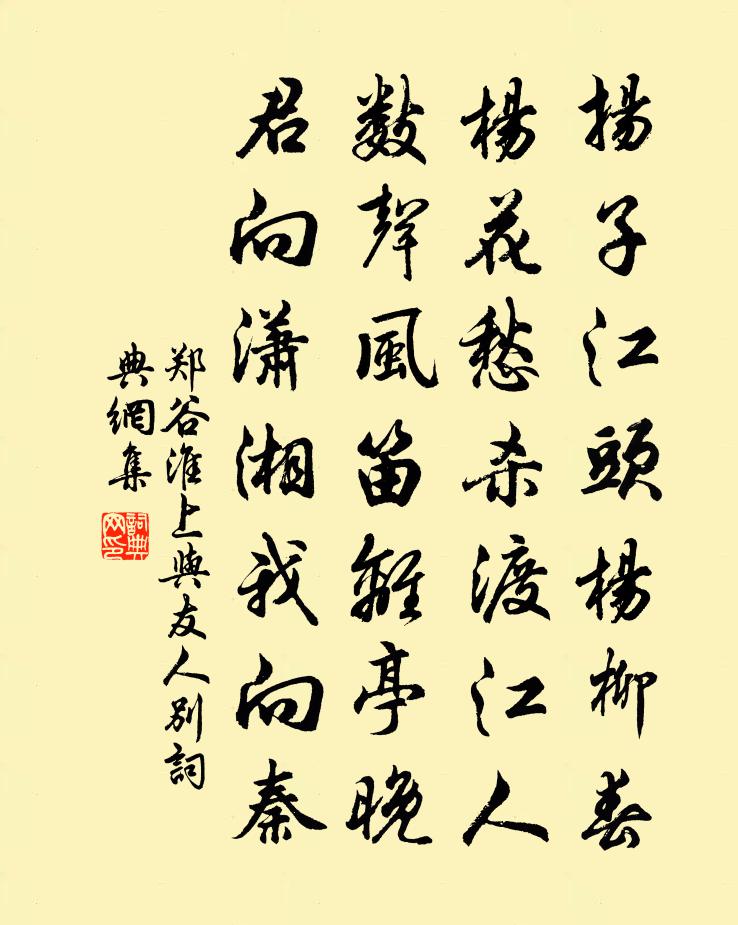 揚子江頭楊柳春
楊花愁杀渡江人
數聲風笛離亭晚
君向瀟湘我向秦
郑谷淮上與友人别詞
典網集
詞典
网印